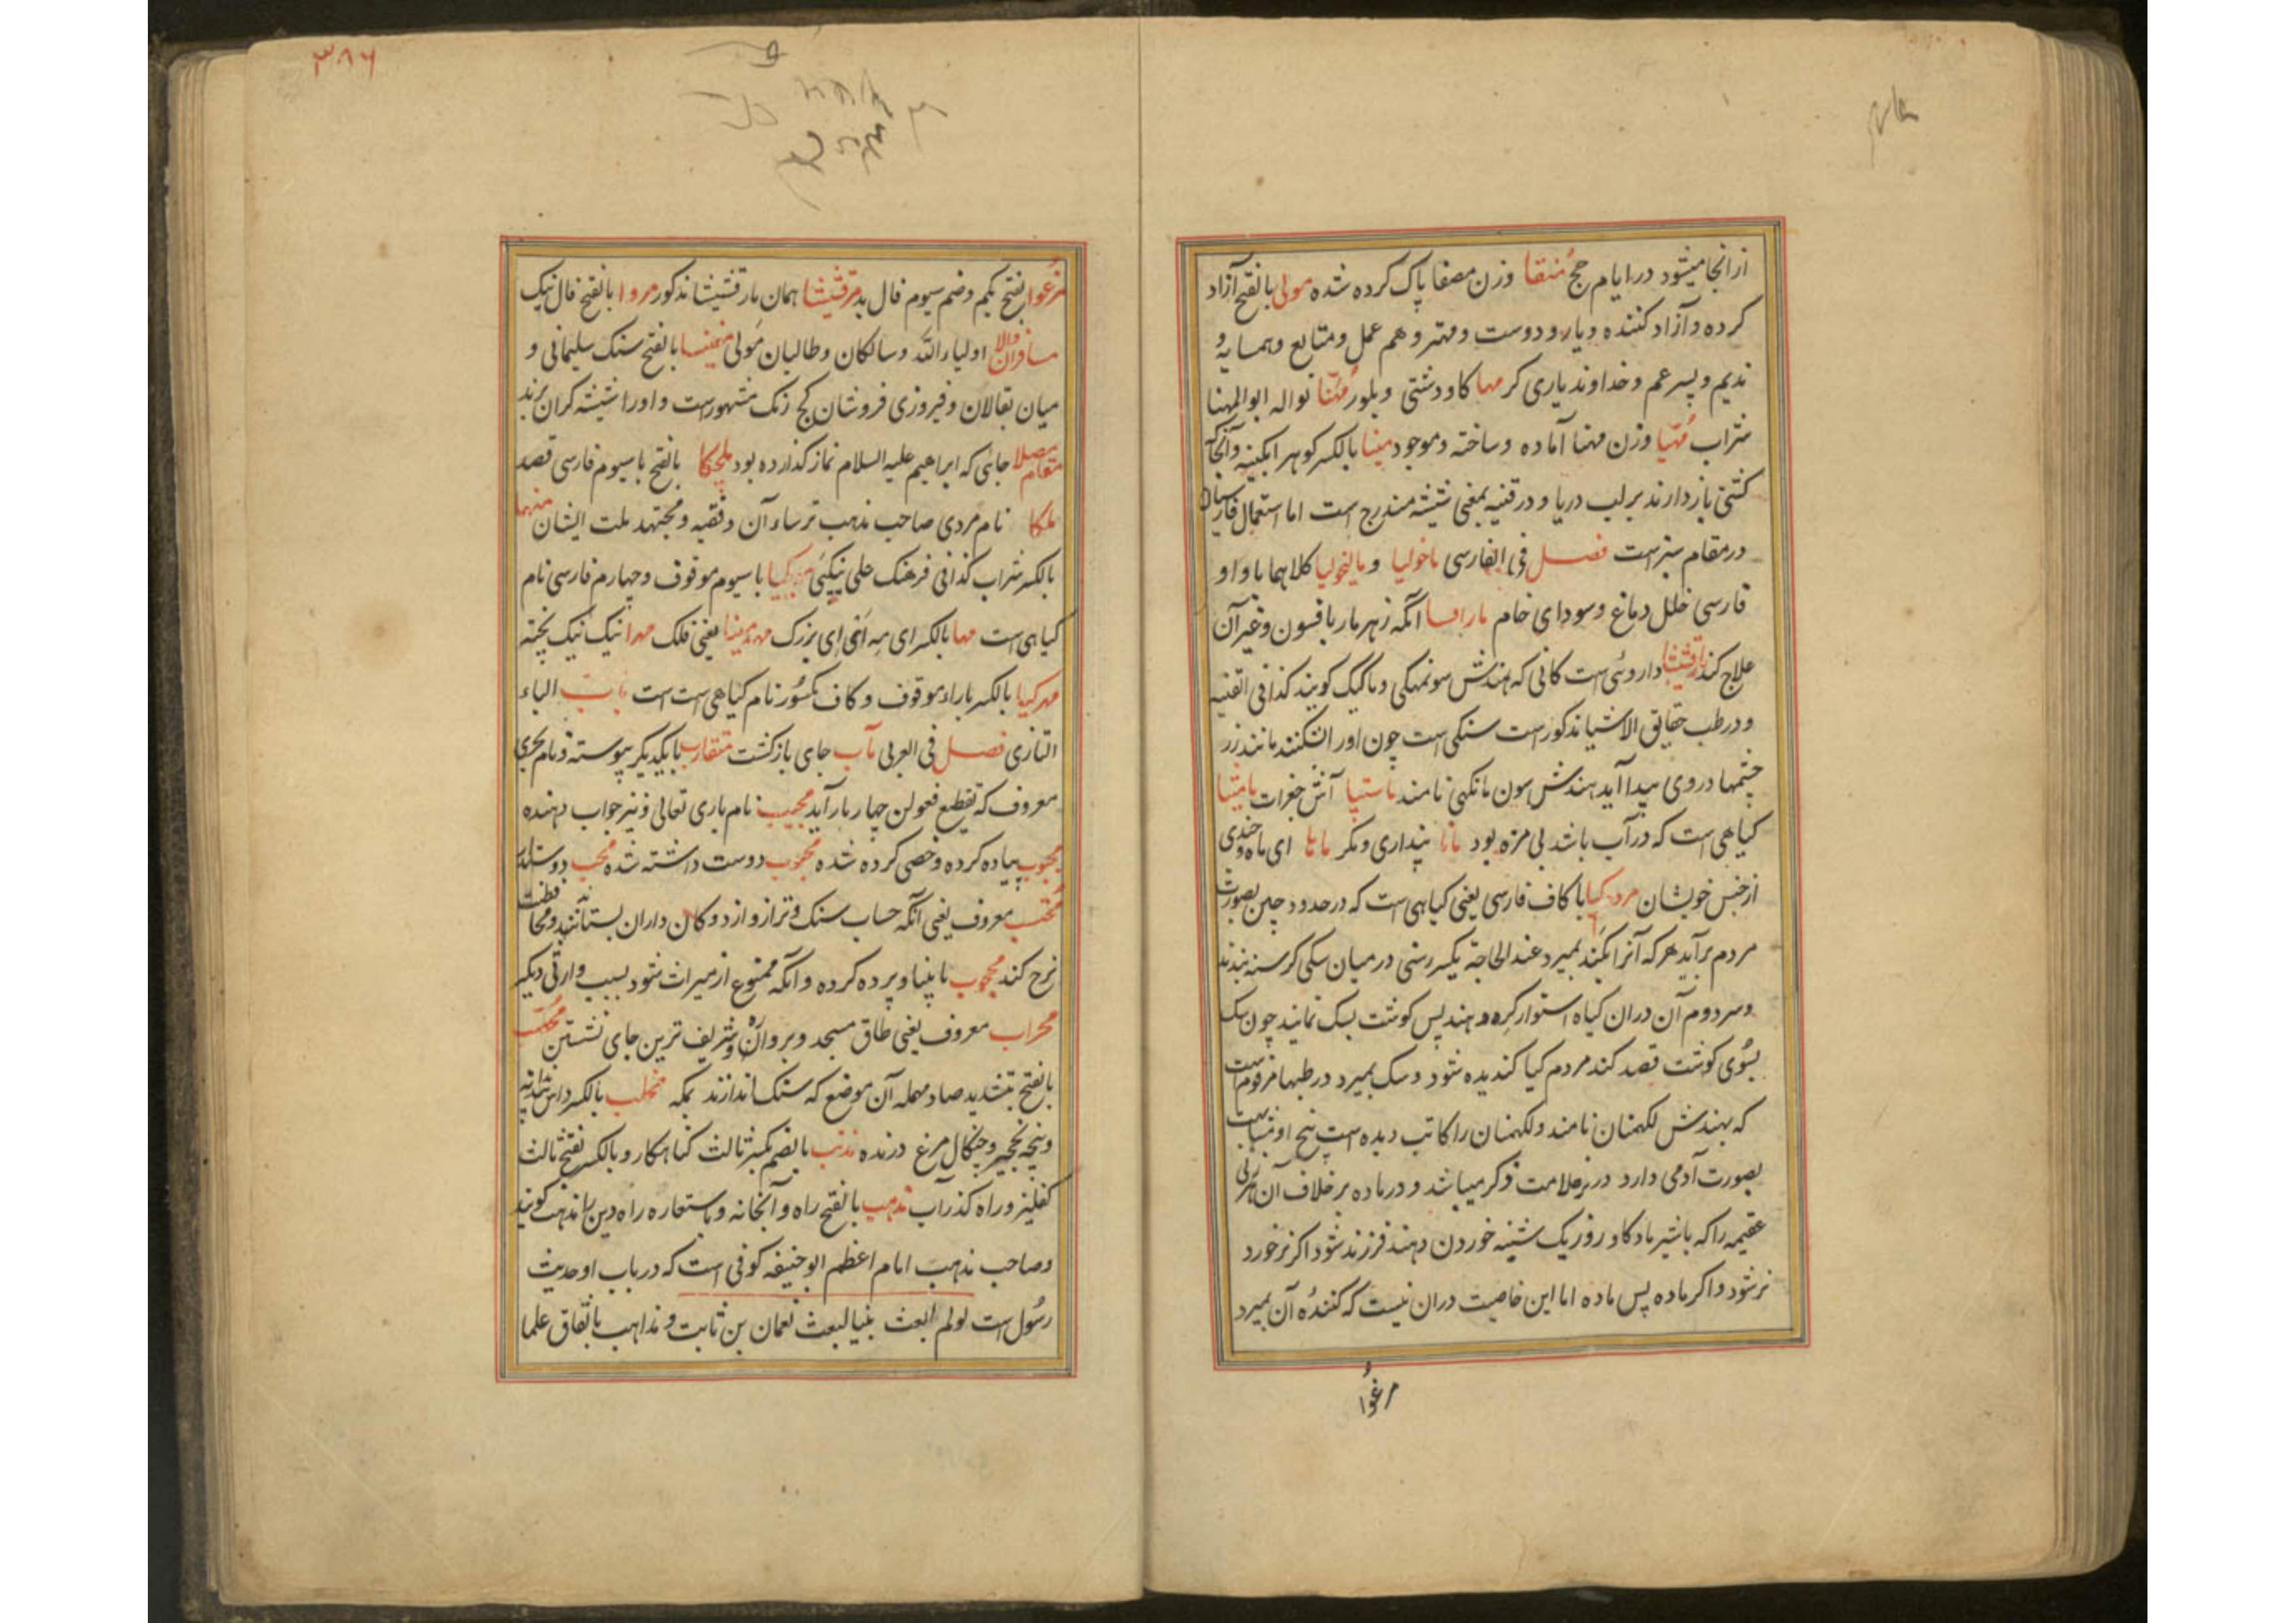 ازانجا میشود در ایام حج منقا وزن مصفا پاک کرده شده مولی بالفتح آزاد
کرده و آزاد کننده و یار و دوست و مهتر و هم عمل و متابع و همسایه و
ندیم و پسر عم و خداوند یاری کر مها کاو دشتی و بلور مهنا نواله ابوالمهنا
شراب مهیا وزن مهنا آماده و ساخته و موجود مینا بالکسر کوهر ابکینه و آنجا که
کشتی باز دارند بر لب دریا و در قنیه بمعنی شیشه مندرج است اما استعمال فارسیان
در مقام سبز است فصل فی الفارسی ماخولیا و مالیخولیا کلاهما با واو
فارسی خلل دماغ و سودای خام مارافسا آنکه زهر مار بافسون و غیر آن
علاج کند مارقشیشا داروئی است کانی که بهندش سونمکهی و ماکیک کویند کذا فی القنیه
و در طب حقایق الاشیا مذکور است سنکی است چون اورا بشکنند مانند زر
چشمها در وی پیدا آید بهندش سون مانکهی نامند ماستبا آش جغرات مامیشا
کیاهی است که در آب باشد بی مزه بود مانا پنداری و مکر ماها ای ماه و خدی
از جنس خویشان مردم کیا با کاف فارسی یعنی کیاهی است که در حدود چین بصورت
مردم برآید هرکه آنرا بکند بمیرد عند الحاجة یکسر رسنی در میان سکی کرسنه بندند
و سر دوم آن دران کیاه استوار کرده دهند پس کوشت بسک نمایند چون سک
بسوی کوشت قصد کند مردم کیا کندیده شود و سک بمیرد در طبها مرقوم است
که بهندش لکهمنان نامند و لکهمنان را کاتب دیده است بیخ او مشابهت
بصورت آدمی دارد در نر علامت ذکر میباشد و در ماده بر خلاف آن هر زنی
عقیمه را که باشیر ماده کاو روز یک شنبه خوردن دهند فرزند شود اکر نر خورد
نر شود و اکر ماده پس ماده اما این خاصیت دران نیست که کنندهٔ آن بمیرد
مرغوا
۳۸۶
مرغوا بفتح یکم و ضم سیوم فال بد مرقشیشا همان مارقشیشا مذکور مروا بالفتح فال نیک
مسافران والا اولیاء الله و سالکان و طالبان مولی مغنیسا بالفتح سنک سلیمانی و
میان بقالان و فیروزی فروشان کج رنک مشهور است و اورا شیشه کران برند
مقام مصلا جائی که ابراهیم علیه السلام نماز کذارده بود ملچکا بالفتح با سیوم فارسی قصد
ملکا نام مردی صاحب مذهب ترساءآن و فقیه و مجتهد ملت ایشان منهیا
بالکسر شراب کذا فی فرهنک علی نیکپی من کیا با سیوم موقوف و چهارم فارسی نام
کیاهی است مها بالکسر ای مه اعنی ای بزرک مهد مینا یعنی فلک مهرا نیک نیک پخته
مهر کیا بالکسر با راء موقوف و کاف مکسور نام کیاهی است است باب الباء
التازی فصل فی العربی مآب جای بازکشت متقارب بایکدیکر پیوسته و نام بحری
معروف که تقطیع فعولن چهار بار آید مجیب نام باری تعالی و نیز جواب دهنده
مجبوب پیاده کرده و خصی کرده شده محبوب دوست داشته شده محب دوستدار
محتسب معروف یعنی آنکه حساب سنک و ترازو از دوکان داران بستانند و محافظت
نرخ کند محجوب نابینا و پرده کرده و آنکه ممنوع از میراث شود بسبب وارثی دیکر
محراب معروف یعنی طاق مسجد و بروآن و شریف ترین جای نشستن محصب
بالفتح بتشدید صاد مهمله آن موضع که سنک اندازند بمکه مخلب بالکسر داس دندانه
و پنجه نخچیر و چنکال مرغ درنده مذنب بالضم بکسر ثالث کناهکار و بالکسر بفتح ثالث
کفلیز و راه کذر آب مذهب بالفتح راه و آبخانه و باستعاره راه دین را مذهب کویند
و صاحب مذهب امام اعظم ابو حنیفه کوفی است که در باب او حدیث
رسول است لو لم ابعث نبیا لبعث نعمان بن ثابت و مذاهب باتفاق علما